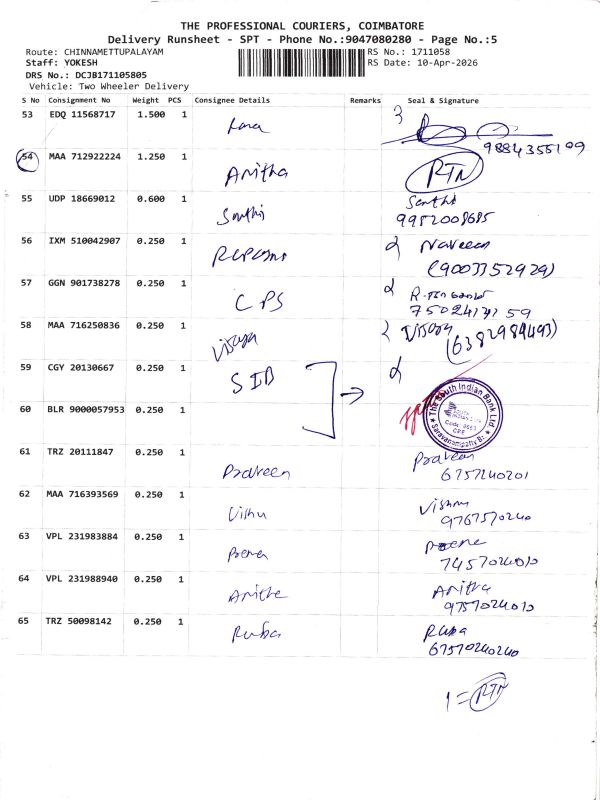 THE PROFESSIONAL COURIERS, COIMBATORE
Delivery Runsheet - SPT - Phone No.:9047080280 - Page No.:5
Route: CHINNAMETTUPALAYAM RS No.: 1711058
Staff: YOKESH RS Date: 10-Apr-2026
DRS No.: DCJB171105805
Vehicle: Two Wheeler Delivery
S No Consignment No Weight PCS Consignee Details Remarks Seal & Signature
53 EDQ 11568717 1.500 1
9884355109
54 MAA 712922224 1.250 1 Anitha RTN
55 UDP 18669012 0.600 1 Santhi
9952008685
56 IXM 510042907 0.250 1 Naveen
(9003352929)
57 GGN 901738278 0.250 1 CPS
58 MAA 716250836 0.250 1 Vijaya
(6382984493)
59 CGY 20130667 0.250 1 SIB
60 BLR 9000057953 0.250 1
The South Indian Bank Ltd
Saravanampatty Br.
61 TRZ 20111847 0.250 1 Praveen Praveen
6757240201
62 MAA 716393569 0.250 1 Vishnu Vishnu
9767570240
63 VPL 231983884 0.250 1
7457024010
64 VPL 231988940 0.250 1 Anitha Anitha
9757024010
65 TRZ 50098142 0.250 1 Ruba Ruba
67570240240
1 = RTN